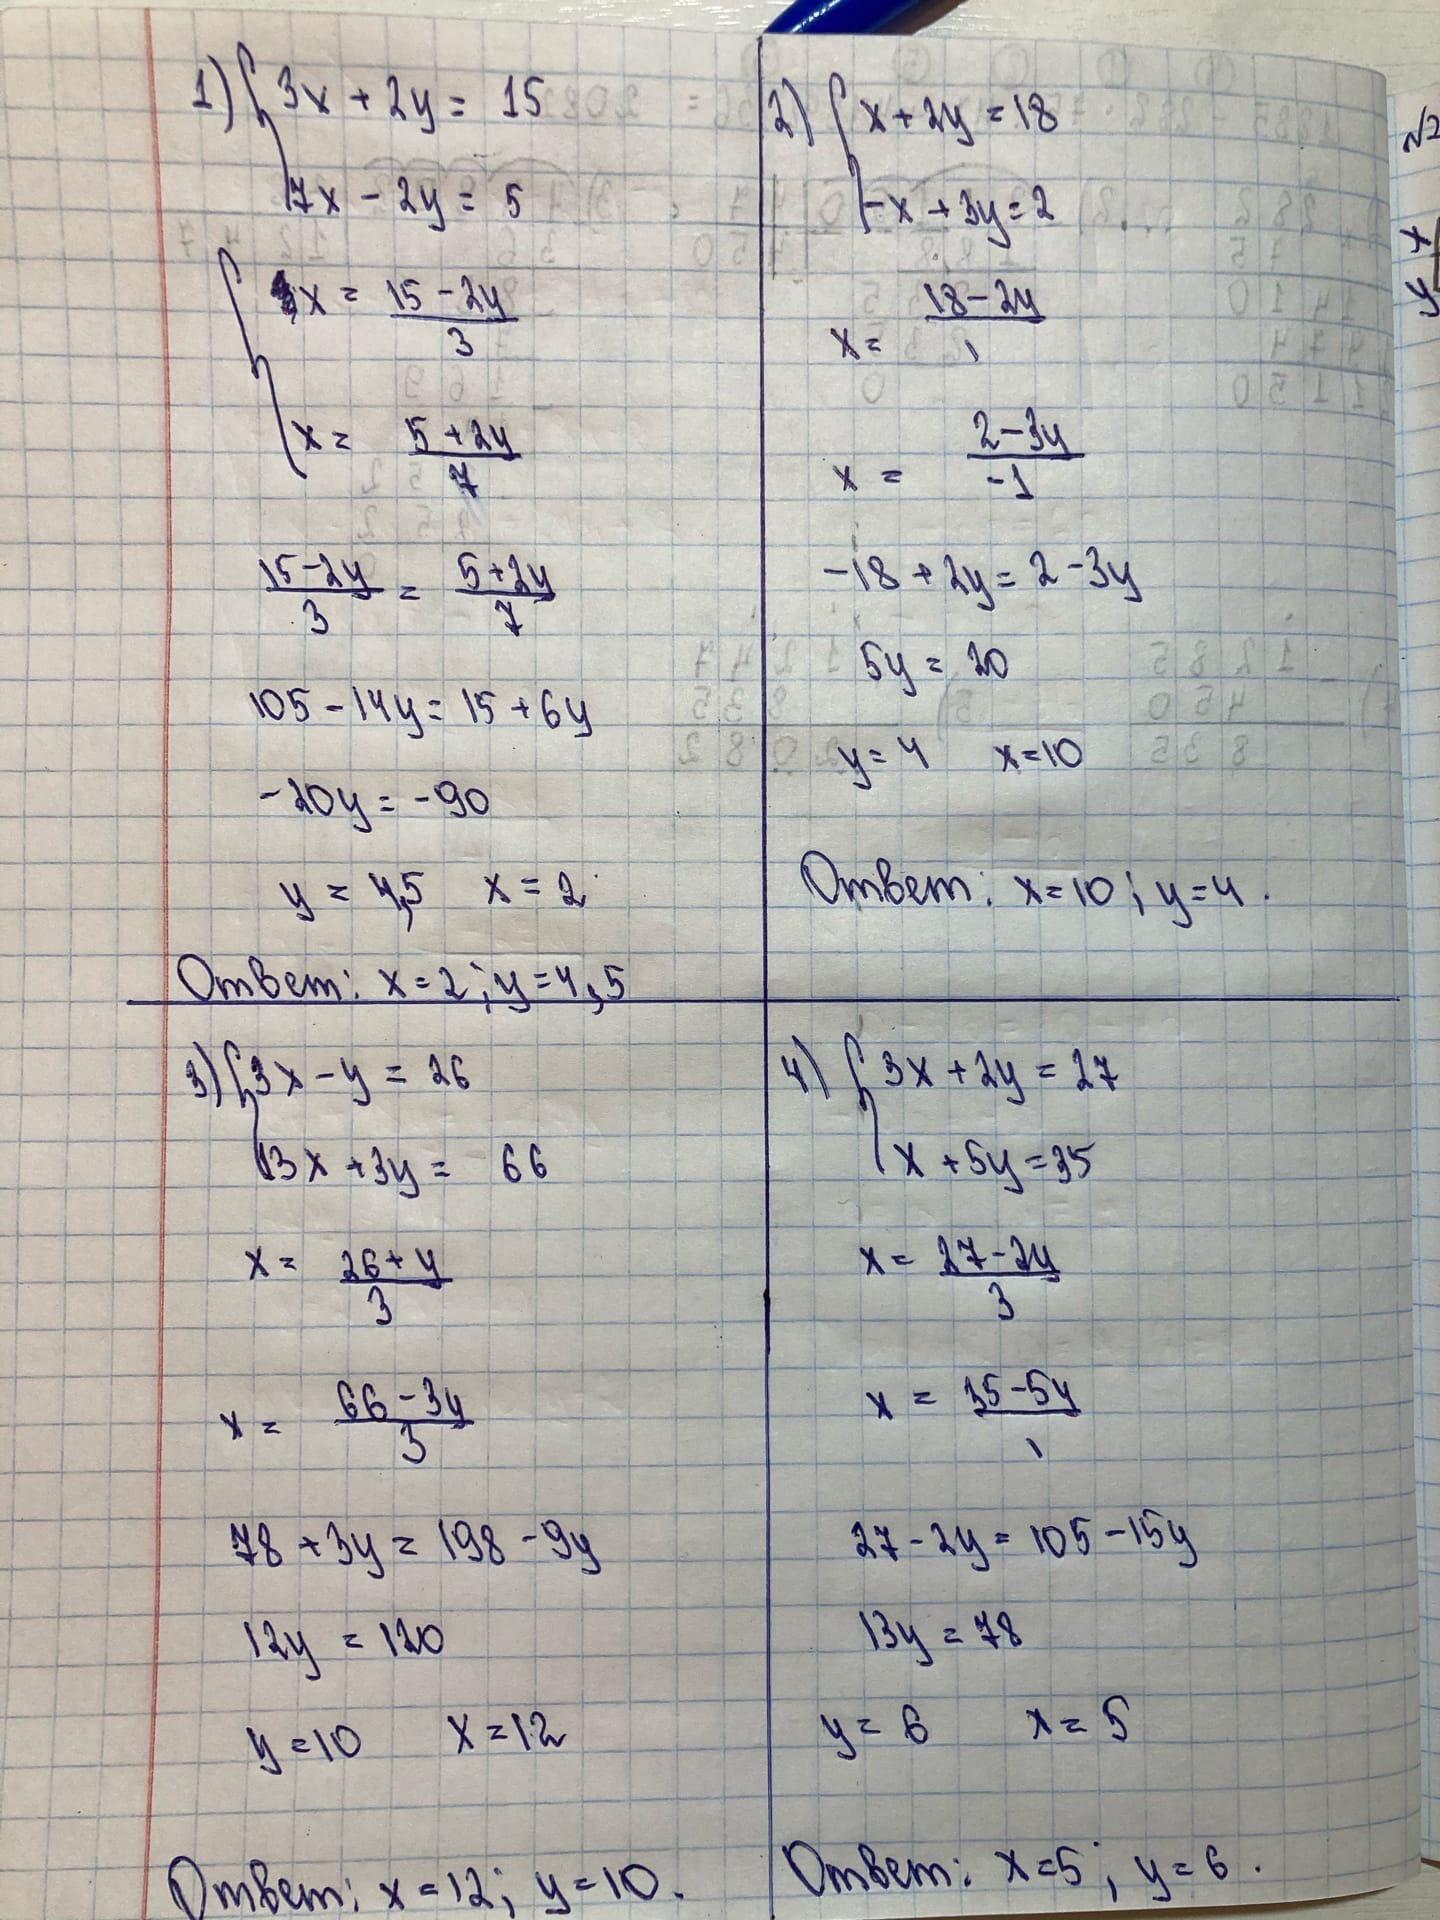 1) { 3x + 2y = 15
7x - 2y = 5
{ x = (15 - 2y)/3
x = (5 + 2y)/7
(15 - 2y)/3 = (5 + 2y)/7
105 - 14y = 15 + 6y
-20y = -90
y = 4,5 x = 2
Ответ: x = 2; y = 4,5
2) { x + 2y = 18
-x + 3y = 2
x = (18 - 2y)/1
x = (2 - 3y)/-1
-18 + 2y = 2 - 3y
5y = 20
y = 4 x = 10
Ответ: x = 10; y = 4.
3) { 3x - y = 26
3x + 3y = 66
x = (26 + y)/3
x = (66 - 3y)/3
78 + 3y = 198 - 9y
12y = 120
y = 10 x = 12
Ответ: x = 12; y = 10.
4) { 3x + 2y = 27
x + 5y = 35
x = (27 - 2y)/3
x = (35 - 5y)/1
27 - 2y = 105 - 15y
13y = 78
y = 6 x = 5
Ответ: x = 5; y = 6.
№2
x
y